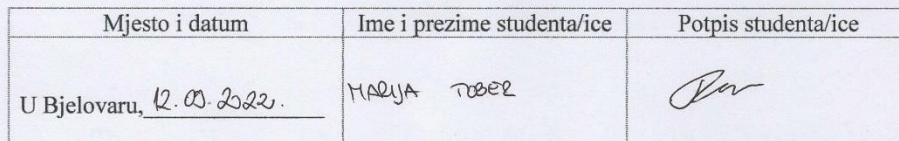 Mjesto i datum
Ime i prezime studenta/ice
Potpis studenta/ice
U Bjelovaru, 12.09.2022.
MARIJA TOBER